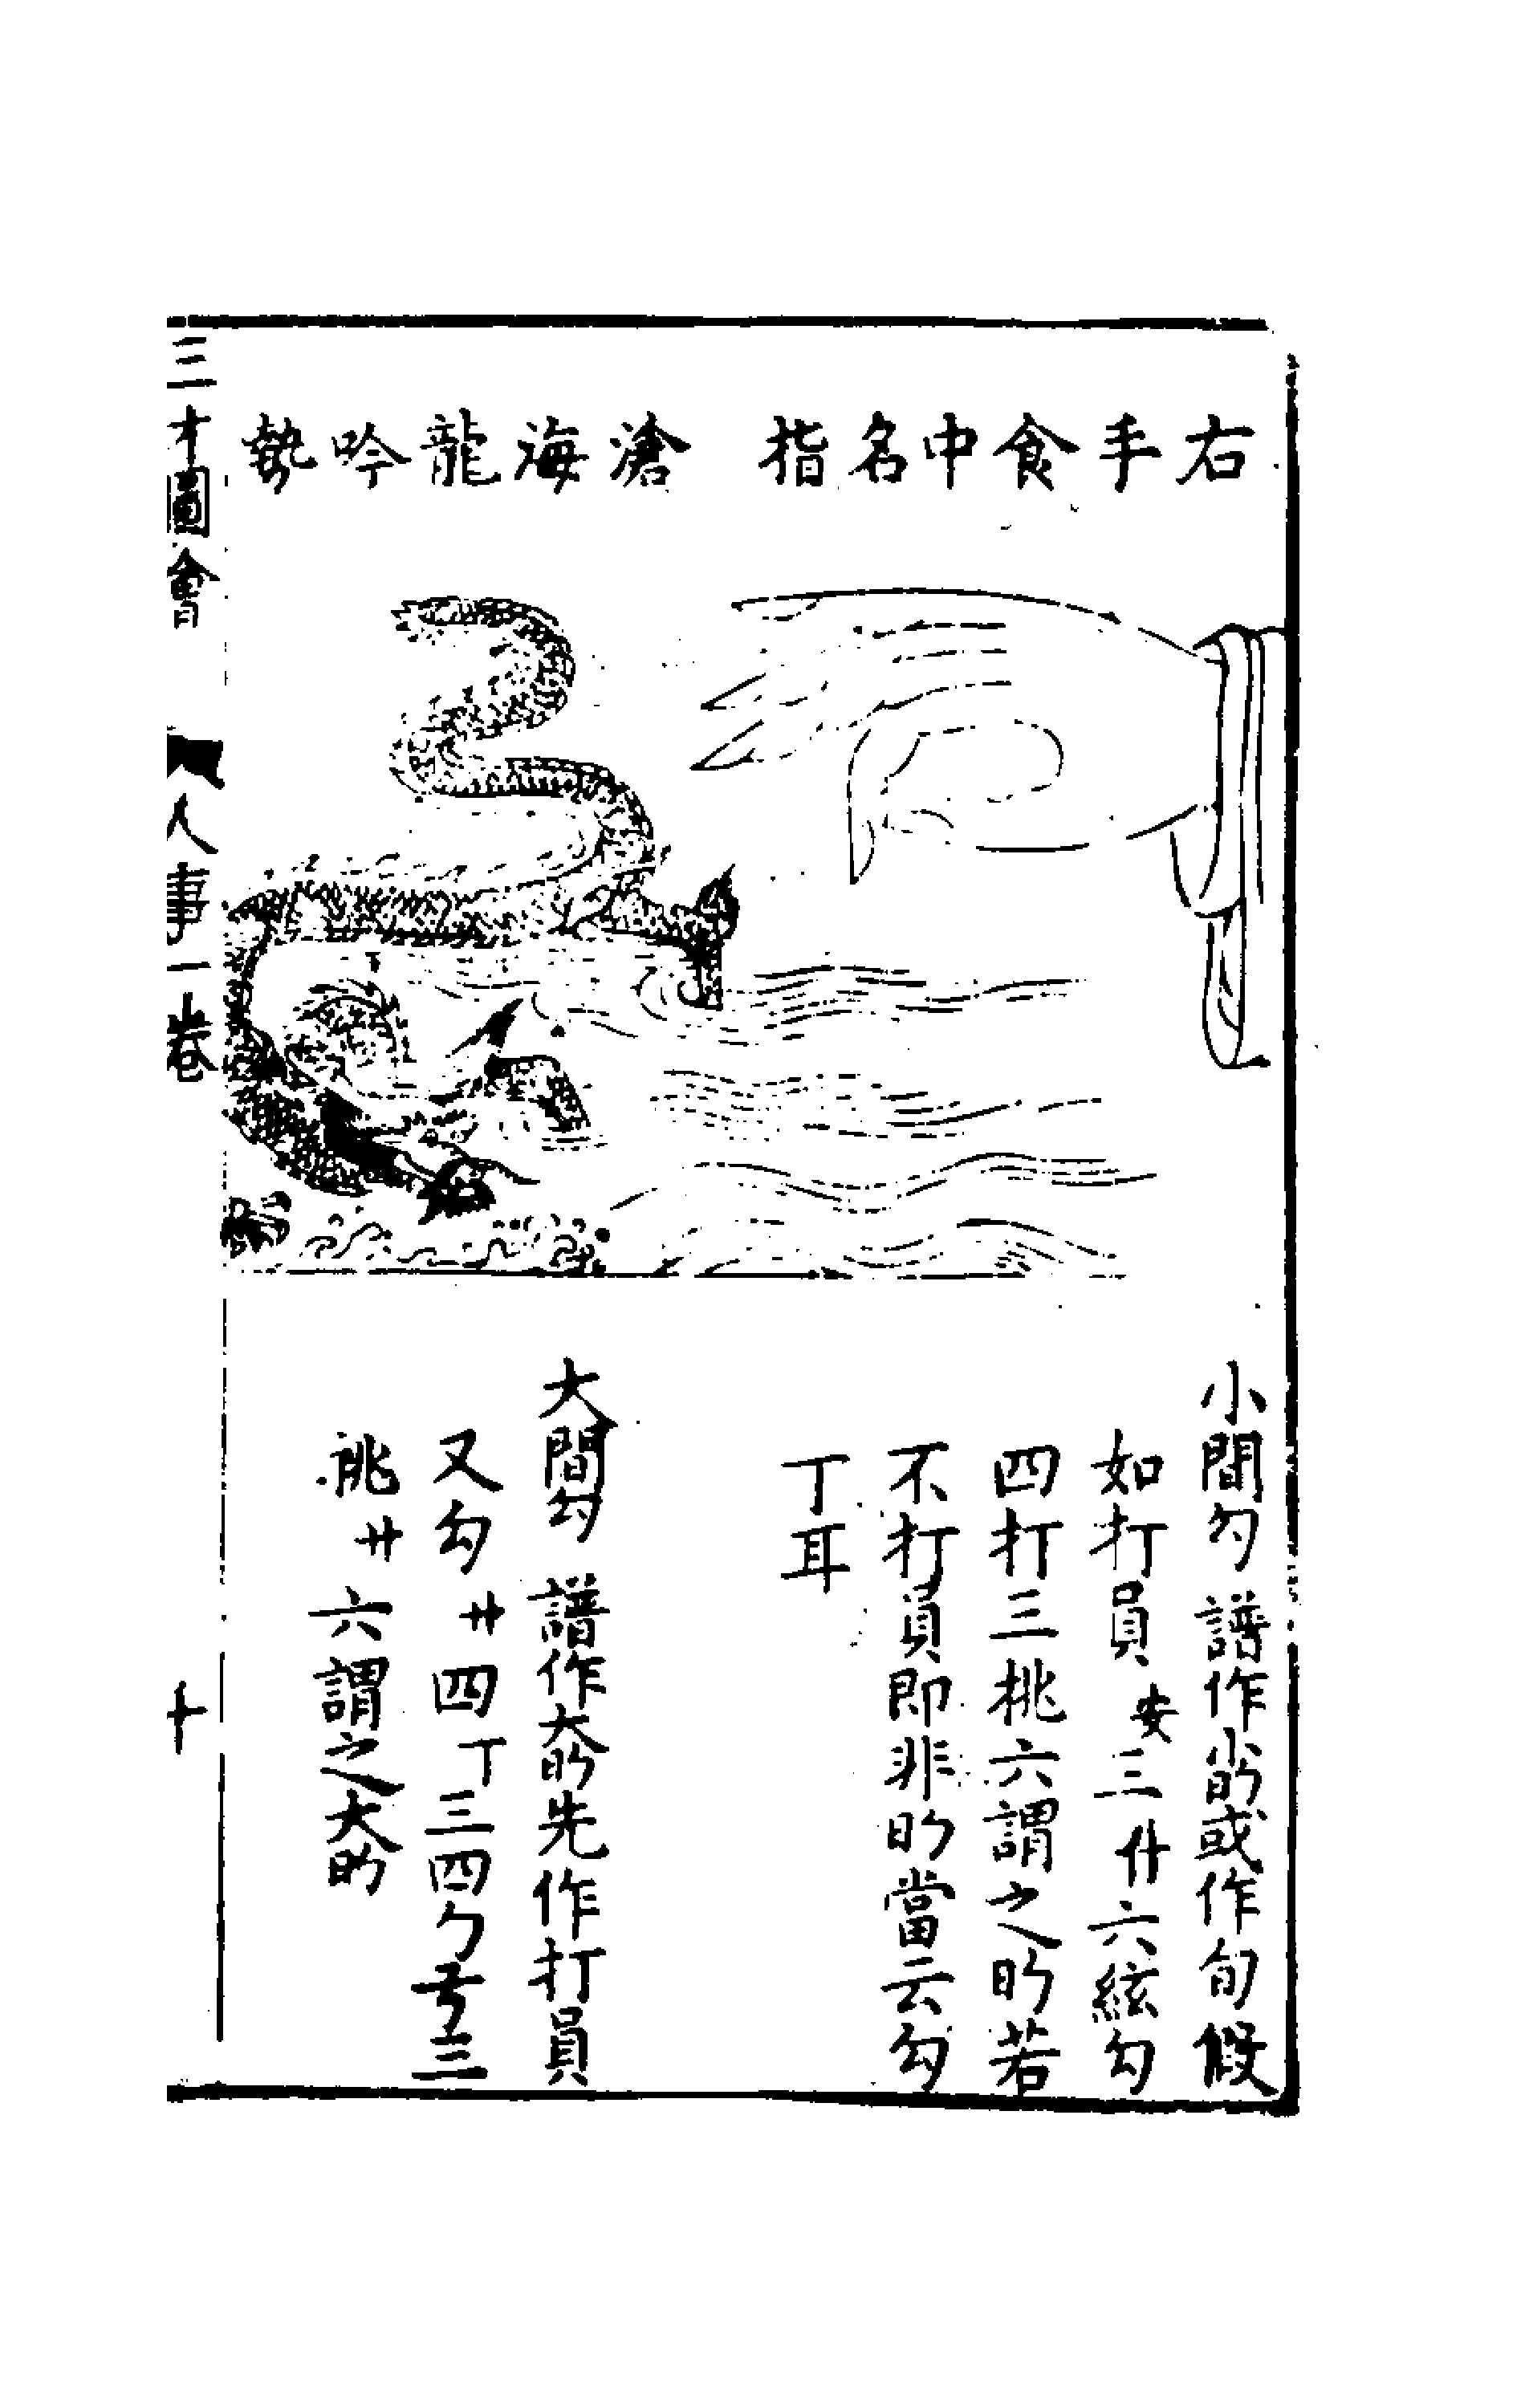 右手食中名指
滄海龍吟勢
小間勾 譜作𣅳或作旬假
如打員 安三廾六絃勾
四打三挑六謂之昀若
不打員即非昀當云勾
丁耳
大間勾 譜作 先作打員
又勾廾四丁三四勹 三
挑廾六謂之大昀
三才圖會
人事一卷
十